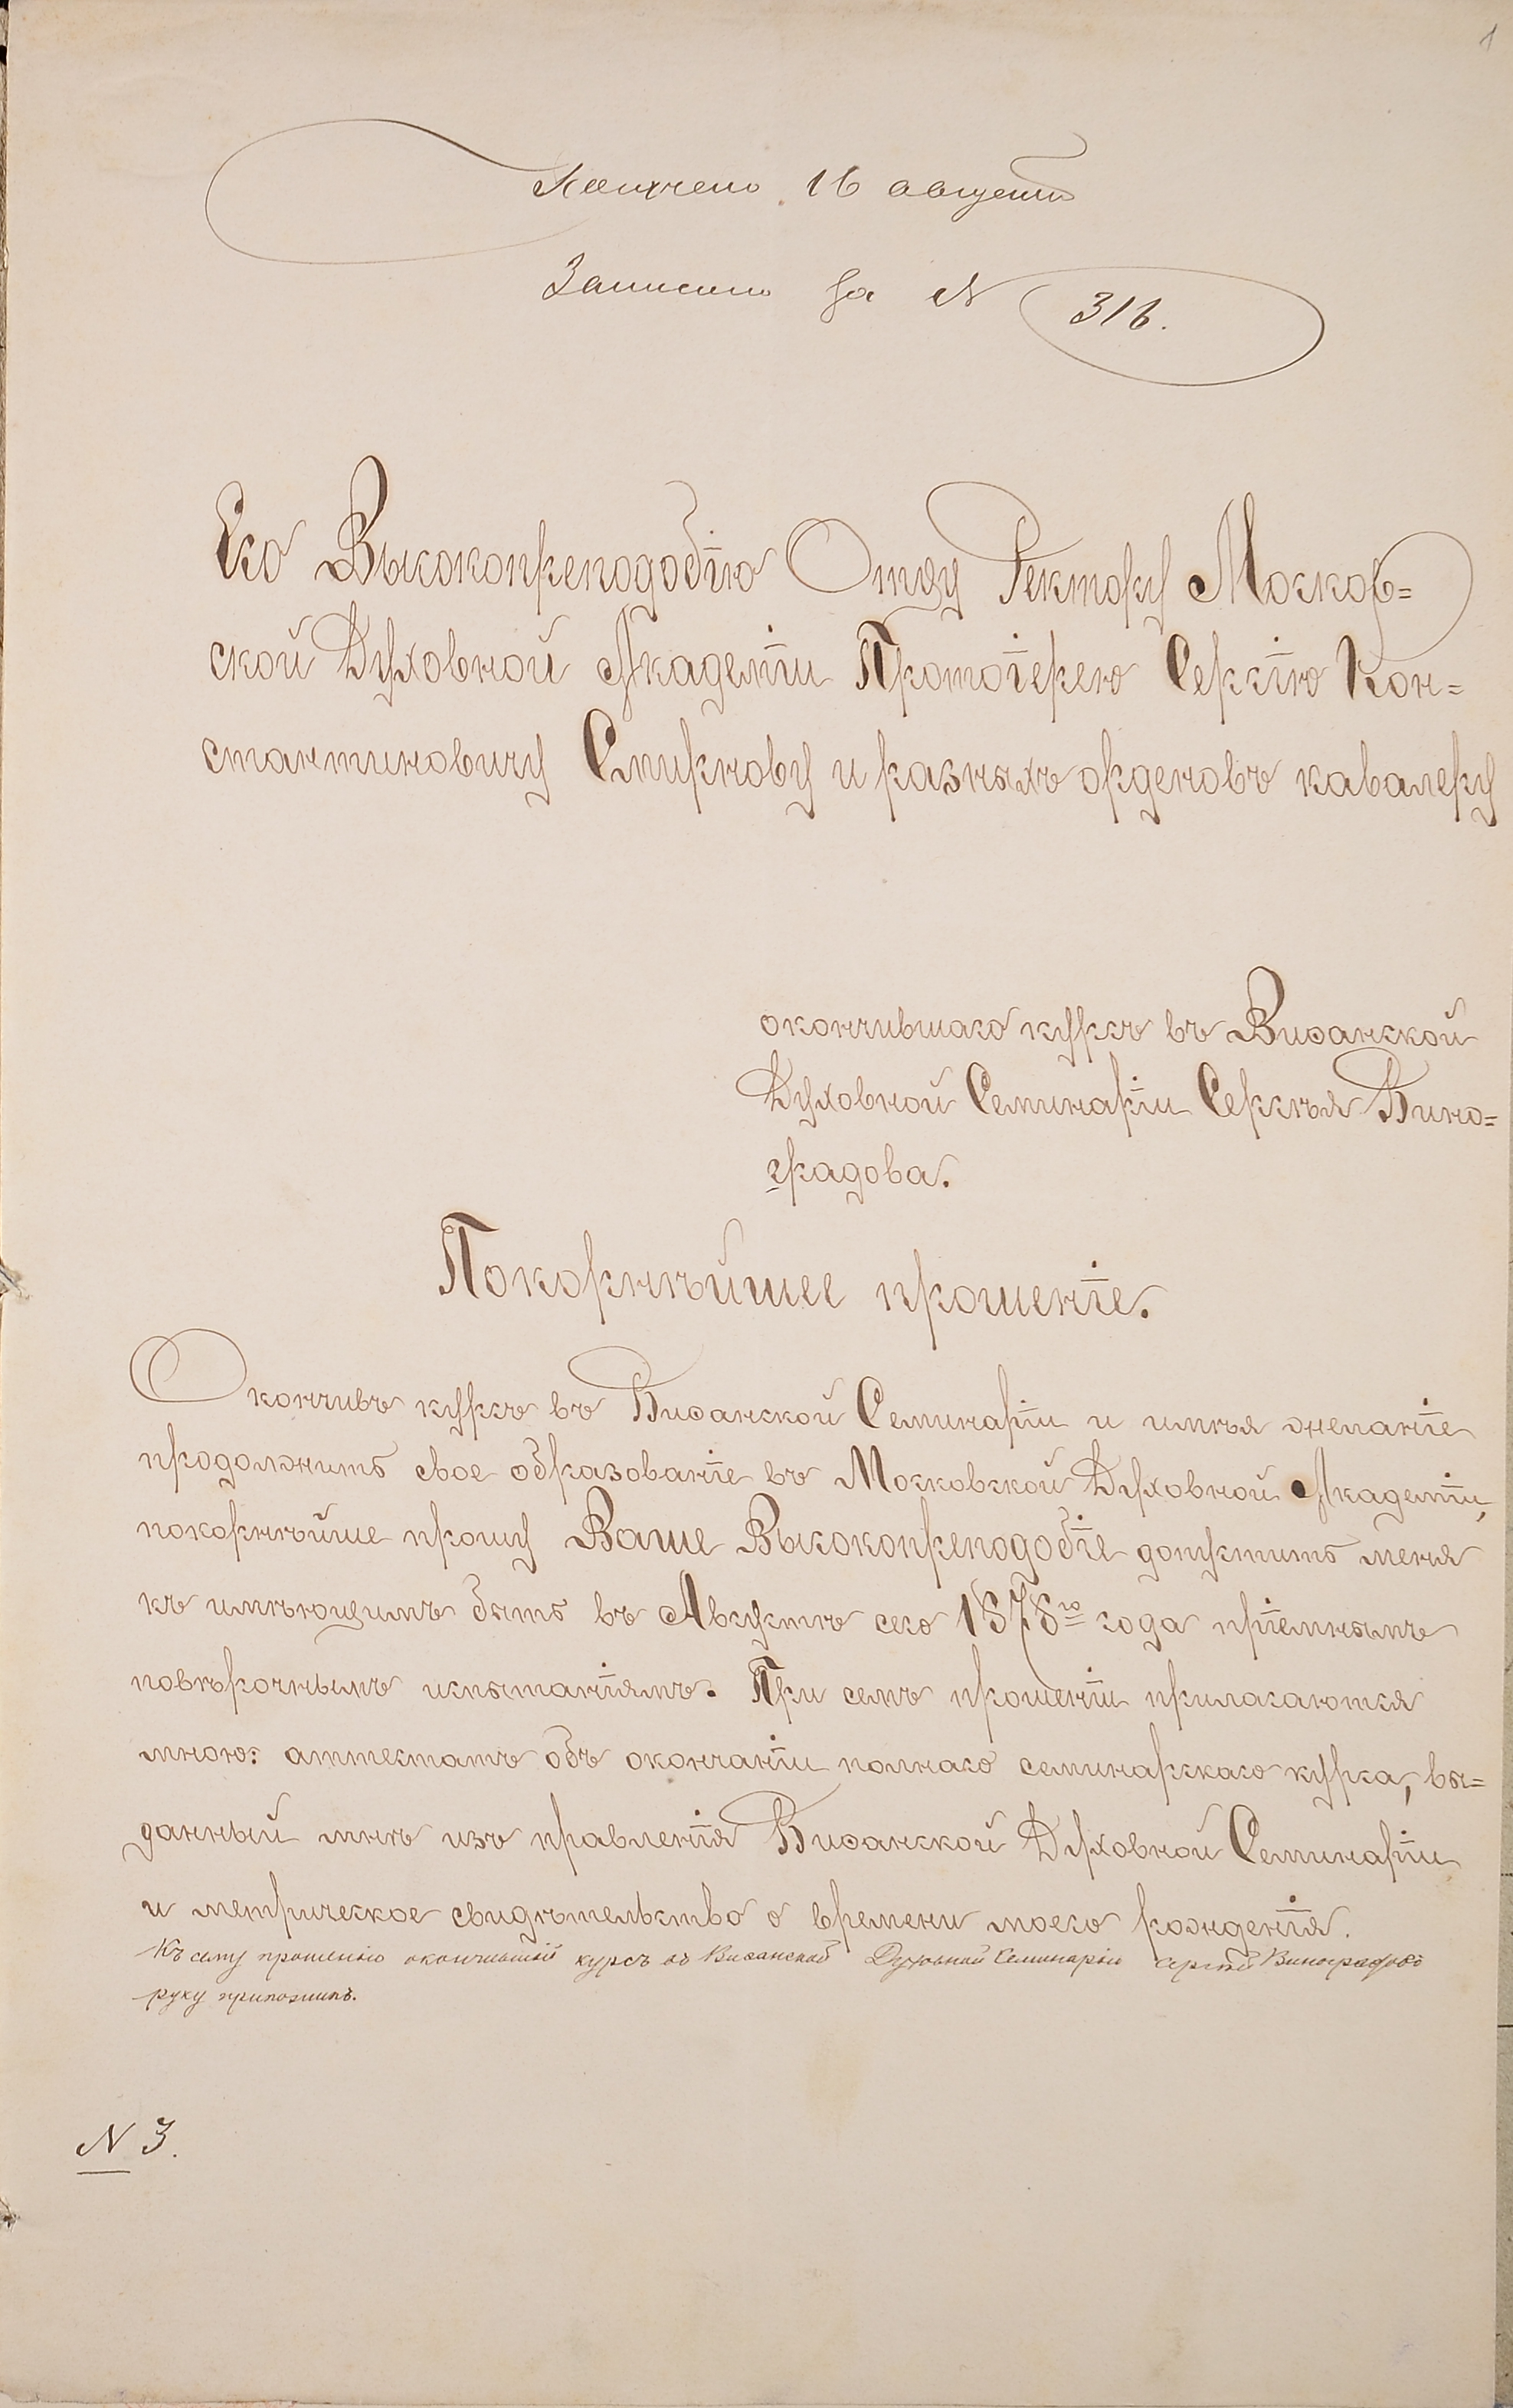 1
Получено 16 августа
Записано за N 316.
Его Высокопреподобію Отцу Ректору Москов=
ской Духовной Академіи Протоіерею Сергію Кон=
стантиновичу Смирнову и разныхъ орденовъ кавалеру
окончившаго курсъ въ Виѳанской
Духовной Семинаріи Сергѣя Вино=
градова.
Покорнѣйшее прошеніе.
Окончивъ курсъ въ Виѳанской Семинаріи и имѣя желаніе
продолжить свое образованіе въ Московской Духовной Академіи,
покорнѣйше прошу Ваше Высокопреподобіе допустить меня
къ имѣющимъ быть въ Августѣ сего 1878го года пріемнымъ
повѣрочнымъ испытаніямъ. При семъ прошеніи прилагаются
мною: аттестатъ объ окончаніи полнаго семинарскаго курса, вы=
данный мнѣ изъ правленія Виѳанской Духовной Семинаріи
и метрическое свидѣтельство о времени моего рожденія.
Къ сему прошенію окончившій курсъ въ Виѳанской Духовной Семинаріи Сергѣй Виноградовъ
руку приложилъ.
N 3.